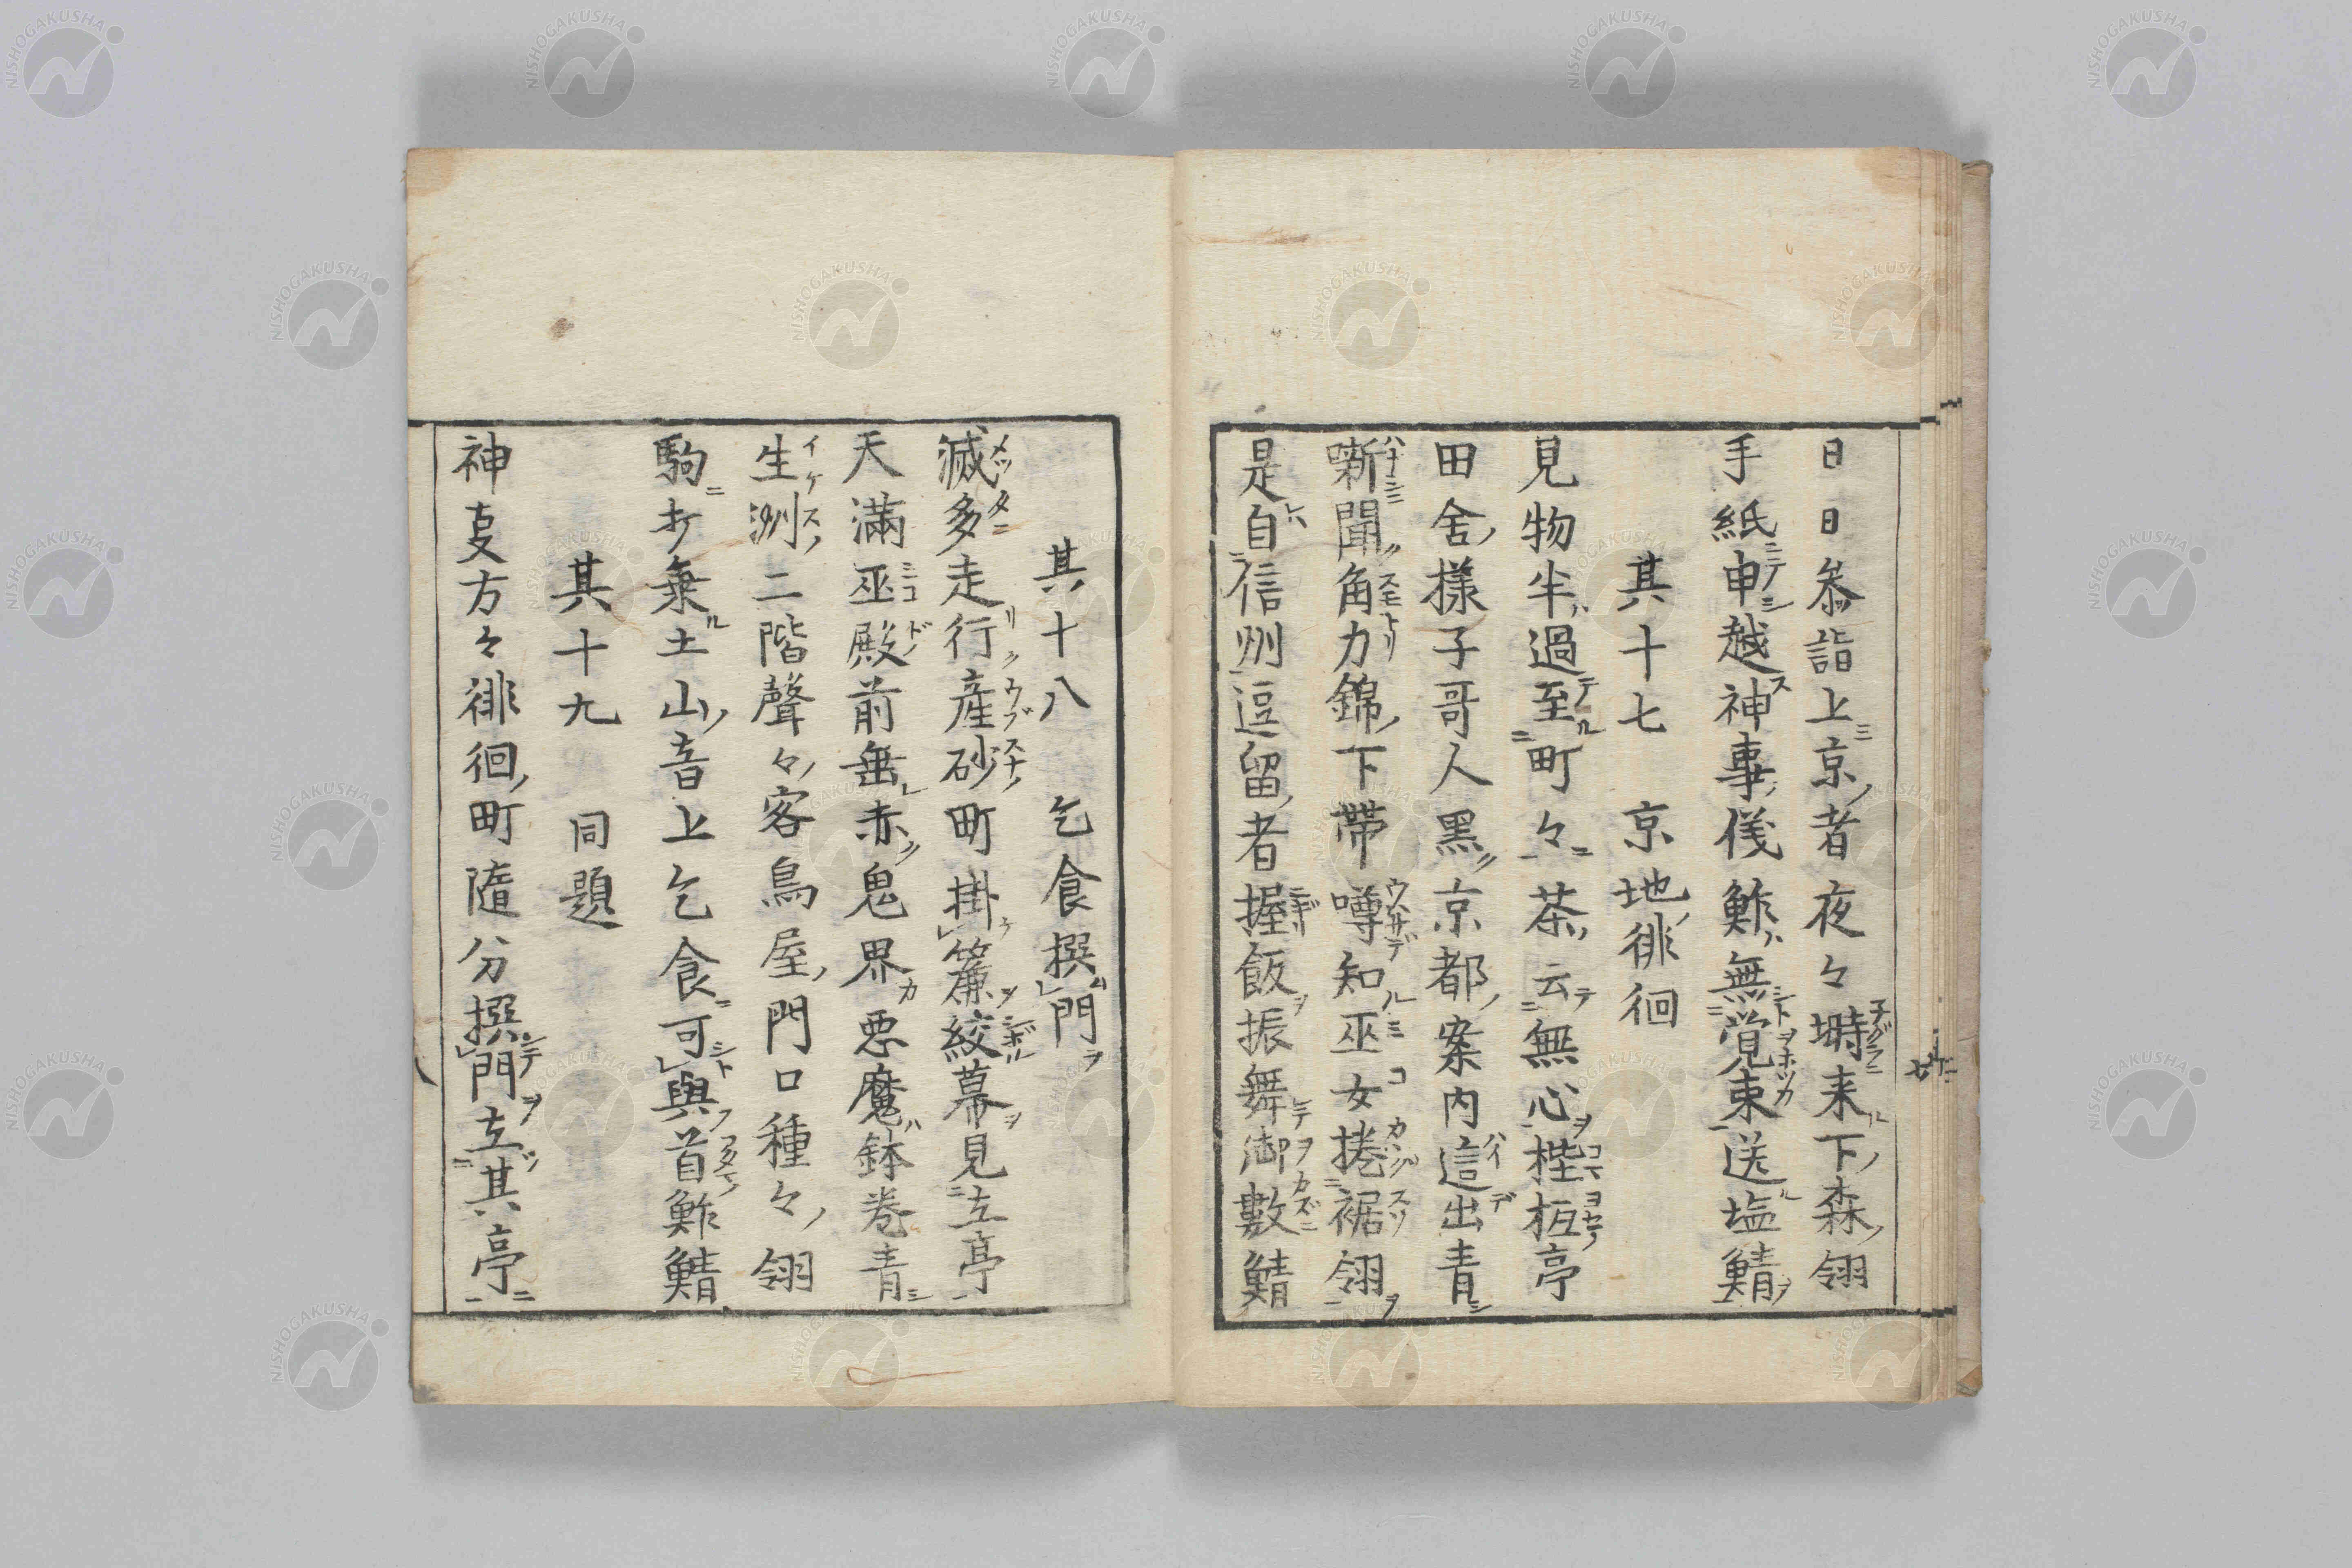 日日叅詣上京者夜々塒来下森翎
手紙申越神事儀鮓無覚束送塩鯖
其十七 京地徘徊
見物半過至町々茶云無心梐枑亭
田舎様子哥人黒京都案内這出青
噺聞角力錦下帯噂知巫女捲裾翎
是自信州逗留者握飯振舞御數鯖
其十八 乞食撰門
滅多走行産砂町掛簾絞幕見立亭
天満巫殿前垂赤鬼界悪魔鉢巻青
生洲二階聲々客鳥屋門口種々翎
駒才乗土山音上乞食可與首鮓鯖
其十九 同題
神支方々徘徊町隨分撰門立其亭